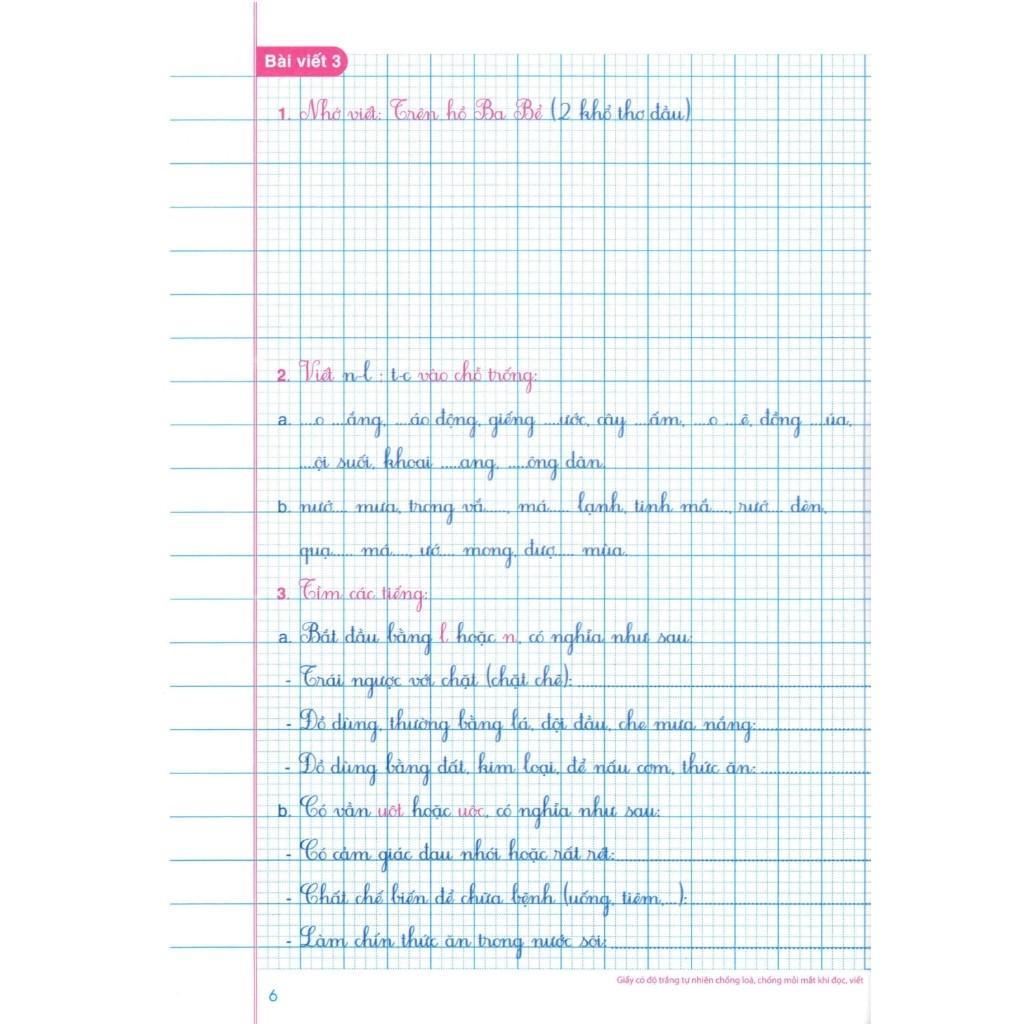 Bài viết 3
1. Nhớ viết: Trên hồ Ba Bể (2 khổ thơ đầu)
2. Viết n-l ; t-c vào chỗ trống:
a. ...o ...ắng, ...áo động, giếng ....ước, cây ...ấm, ...o ...ê, đồng ...úa,
...ội suối, khoai ....ang, ....ông dân.
b. nướ.... mưa, trong vắ....., má..... lạnh, tinh mắ...., rướ... đèn,
quạ..... má...., ướ.... mong, đượ..... mùa.
3. Tìm các tiếng:
a. Bắt đầu bằng l hoặc n, có nghĩa như sau:
- Trái ngược với chặt (chặt chẽ):
- Đồ dùng, thường bằng lá, đội đầu, che mưa nắng:
- Đồ dùng bằng đất, kim loại, để nấu cơm, thức ăn:
b. Có vần uôt hoặc uôc, có nghĩa như sau:
- Có cảm giác đau nhói hoặc rất rét:
- Chất chế biến để chữa bệnh (uống, tiêm,...):
- Làm chín thức ăn trong nước sôi:
Giấy có độ trắng tự nhiên chống loá, chống mỏi mắt khi đọc, viết
6